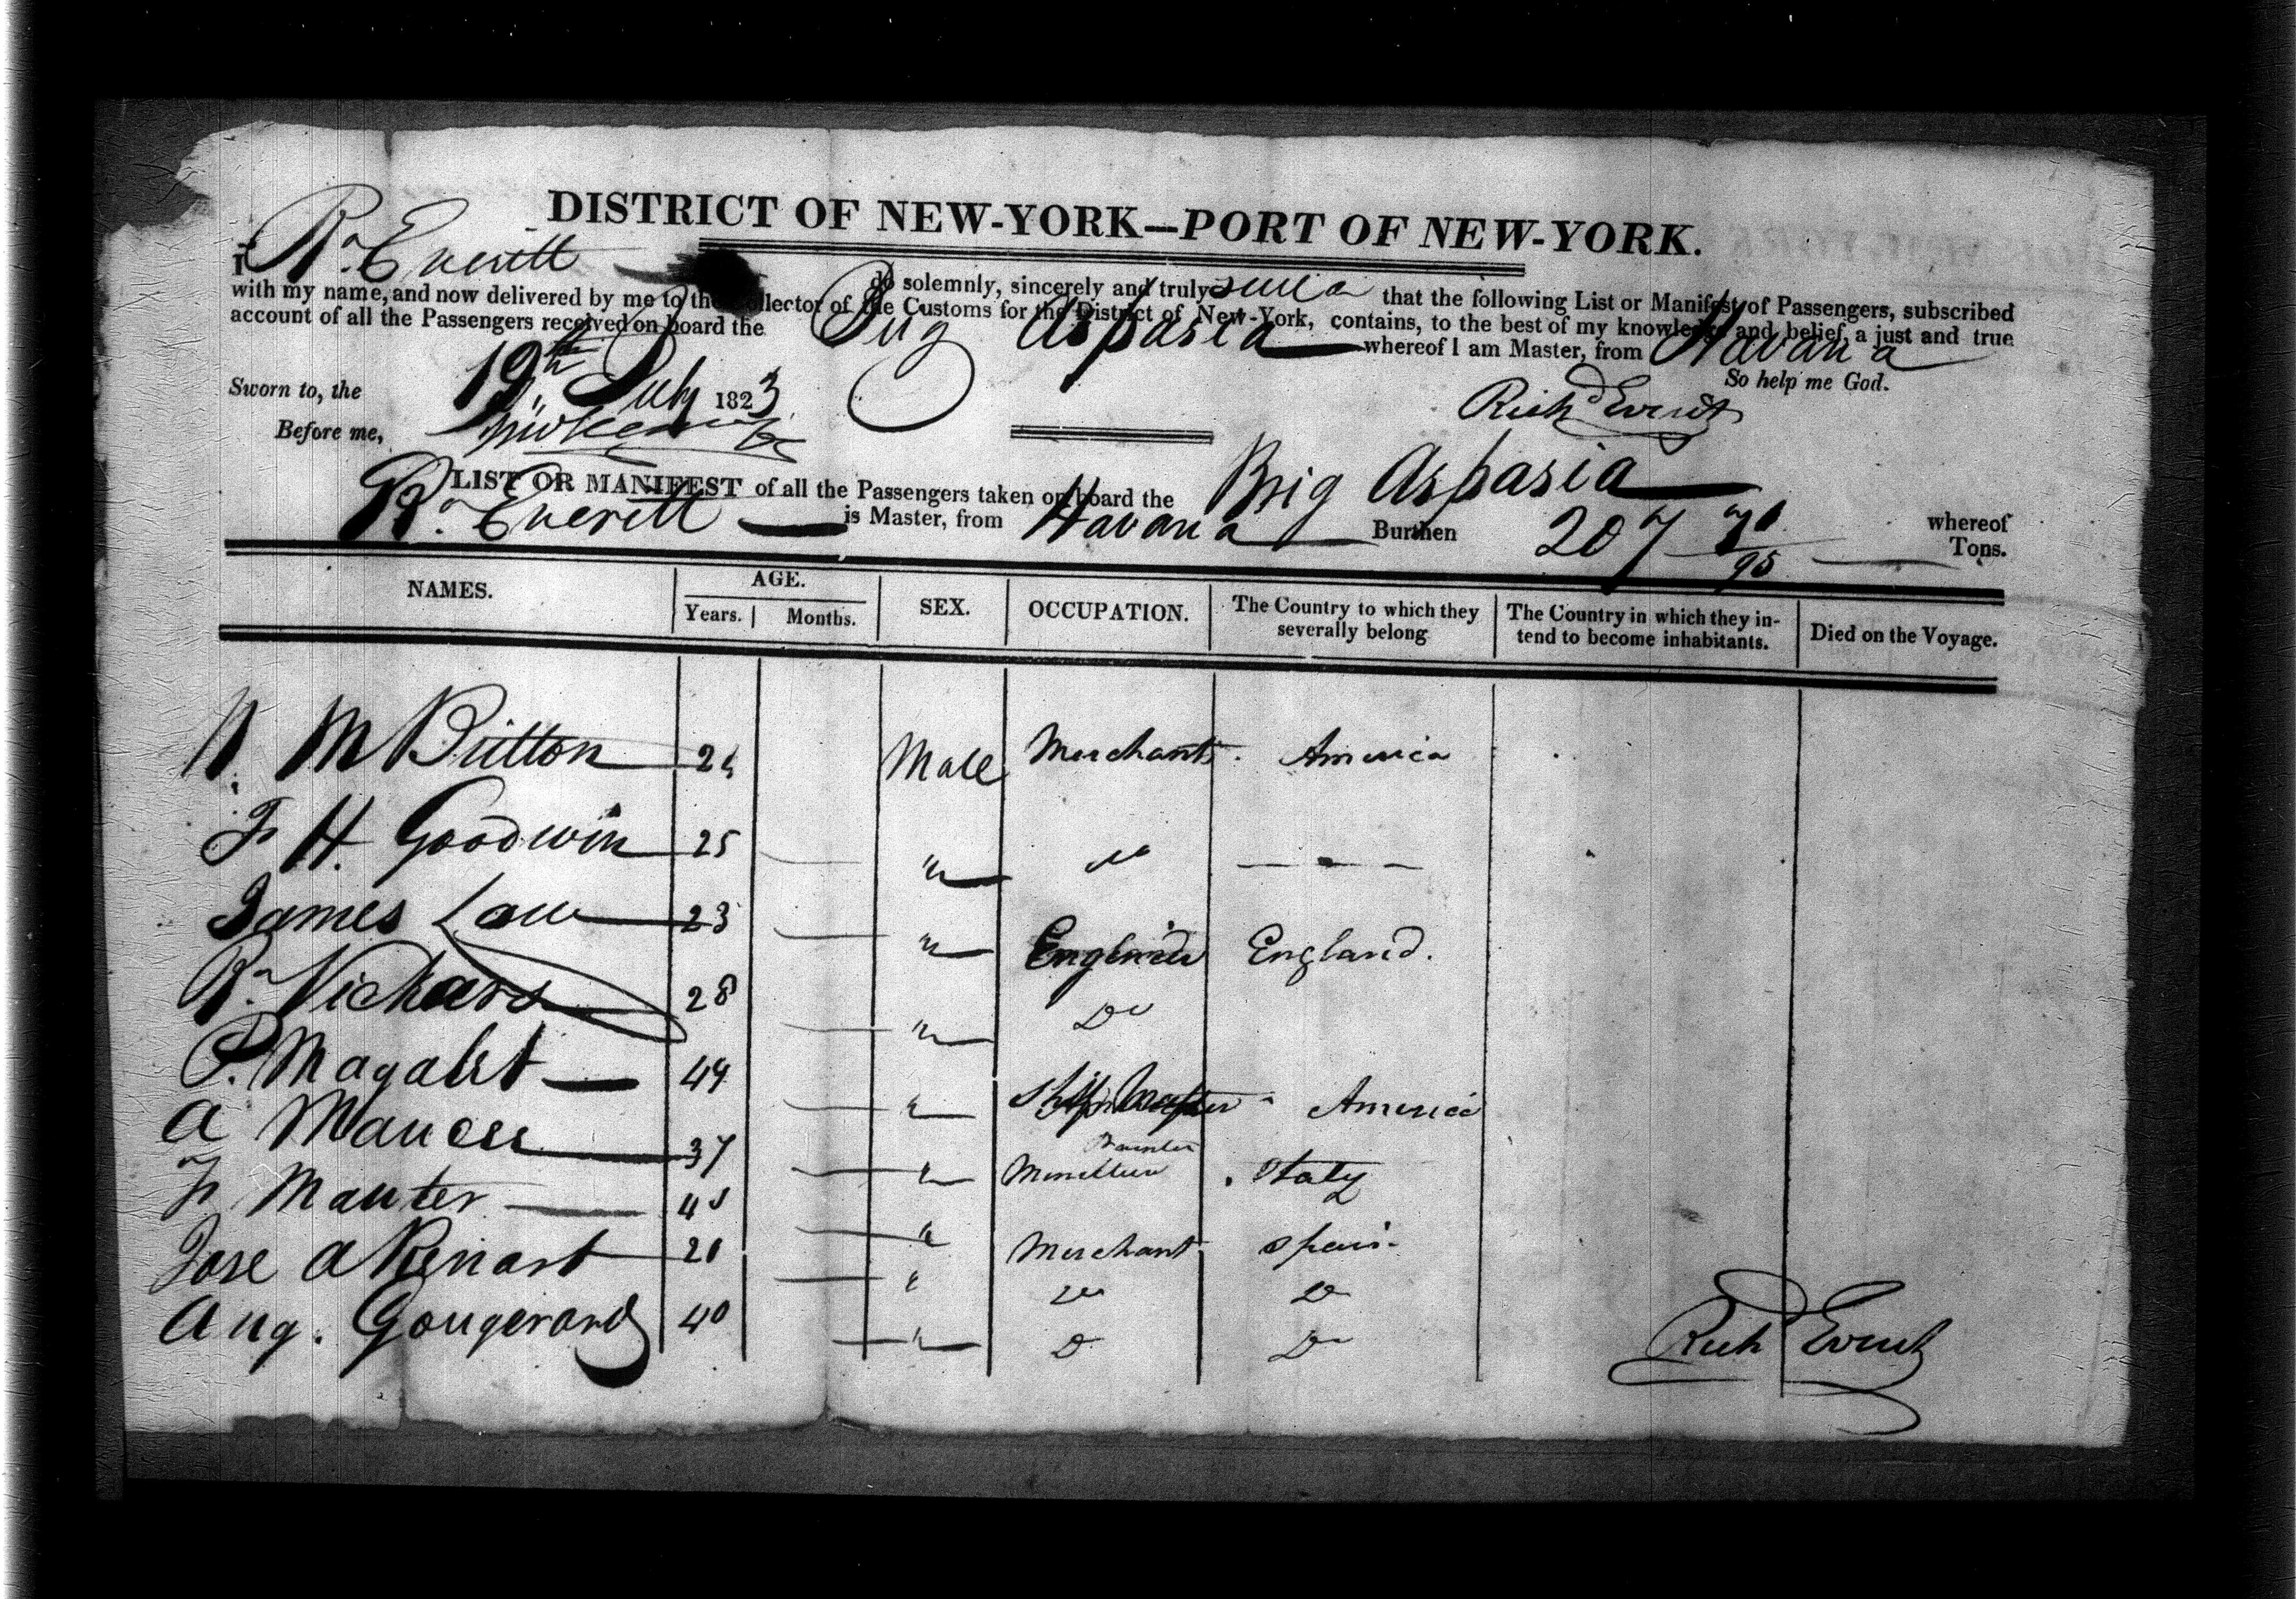 DISTRICT OF NEW-YORK—PORT OF NEW-YORK.
I R. Everitt do solemnly, sincerely and truly that the following List or Manifest of Passengers, subscribed
with my name, and now delivered by me to the Collector of the Customs for the District of New-York, contains, to the best of my knowledge and belief, a just and true
account of all the Passengers received on board the Brig Aspasia whereof I am Master, from Havana
So help me God.
Sworn to, the 19th July 1823
Richd Everitt
Before me,
LIST OR MANIFEST of all the Passengers taken on board the Brig Aspasia whereof
R. Everitt is Master, from Havana Burthen 207 /95 Tons.
NAMES. AGE. SEX. OCCUPATION. The Country to which they severally belong The Country in which they intend to become inhabitants. Died on the Voyage.
Years. Months.
M Britton 24 Male Merchant America
H. Goodwin 25 "
James Law 23 " England.
R. Vickars 28 " Do
P. Magalet 49 " Ship Master America
A 37 " Painter Italy
Mauter " Merchant Spain
Jose A " Do Do
Aug. Gougerand 40 " Do Do
Richd Everitt